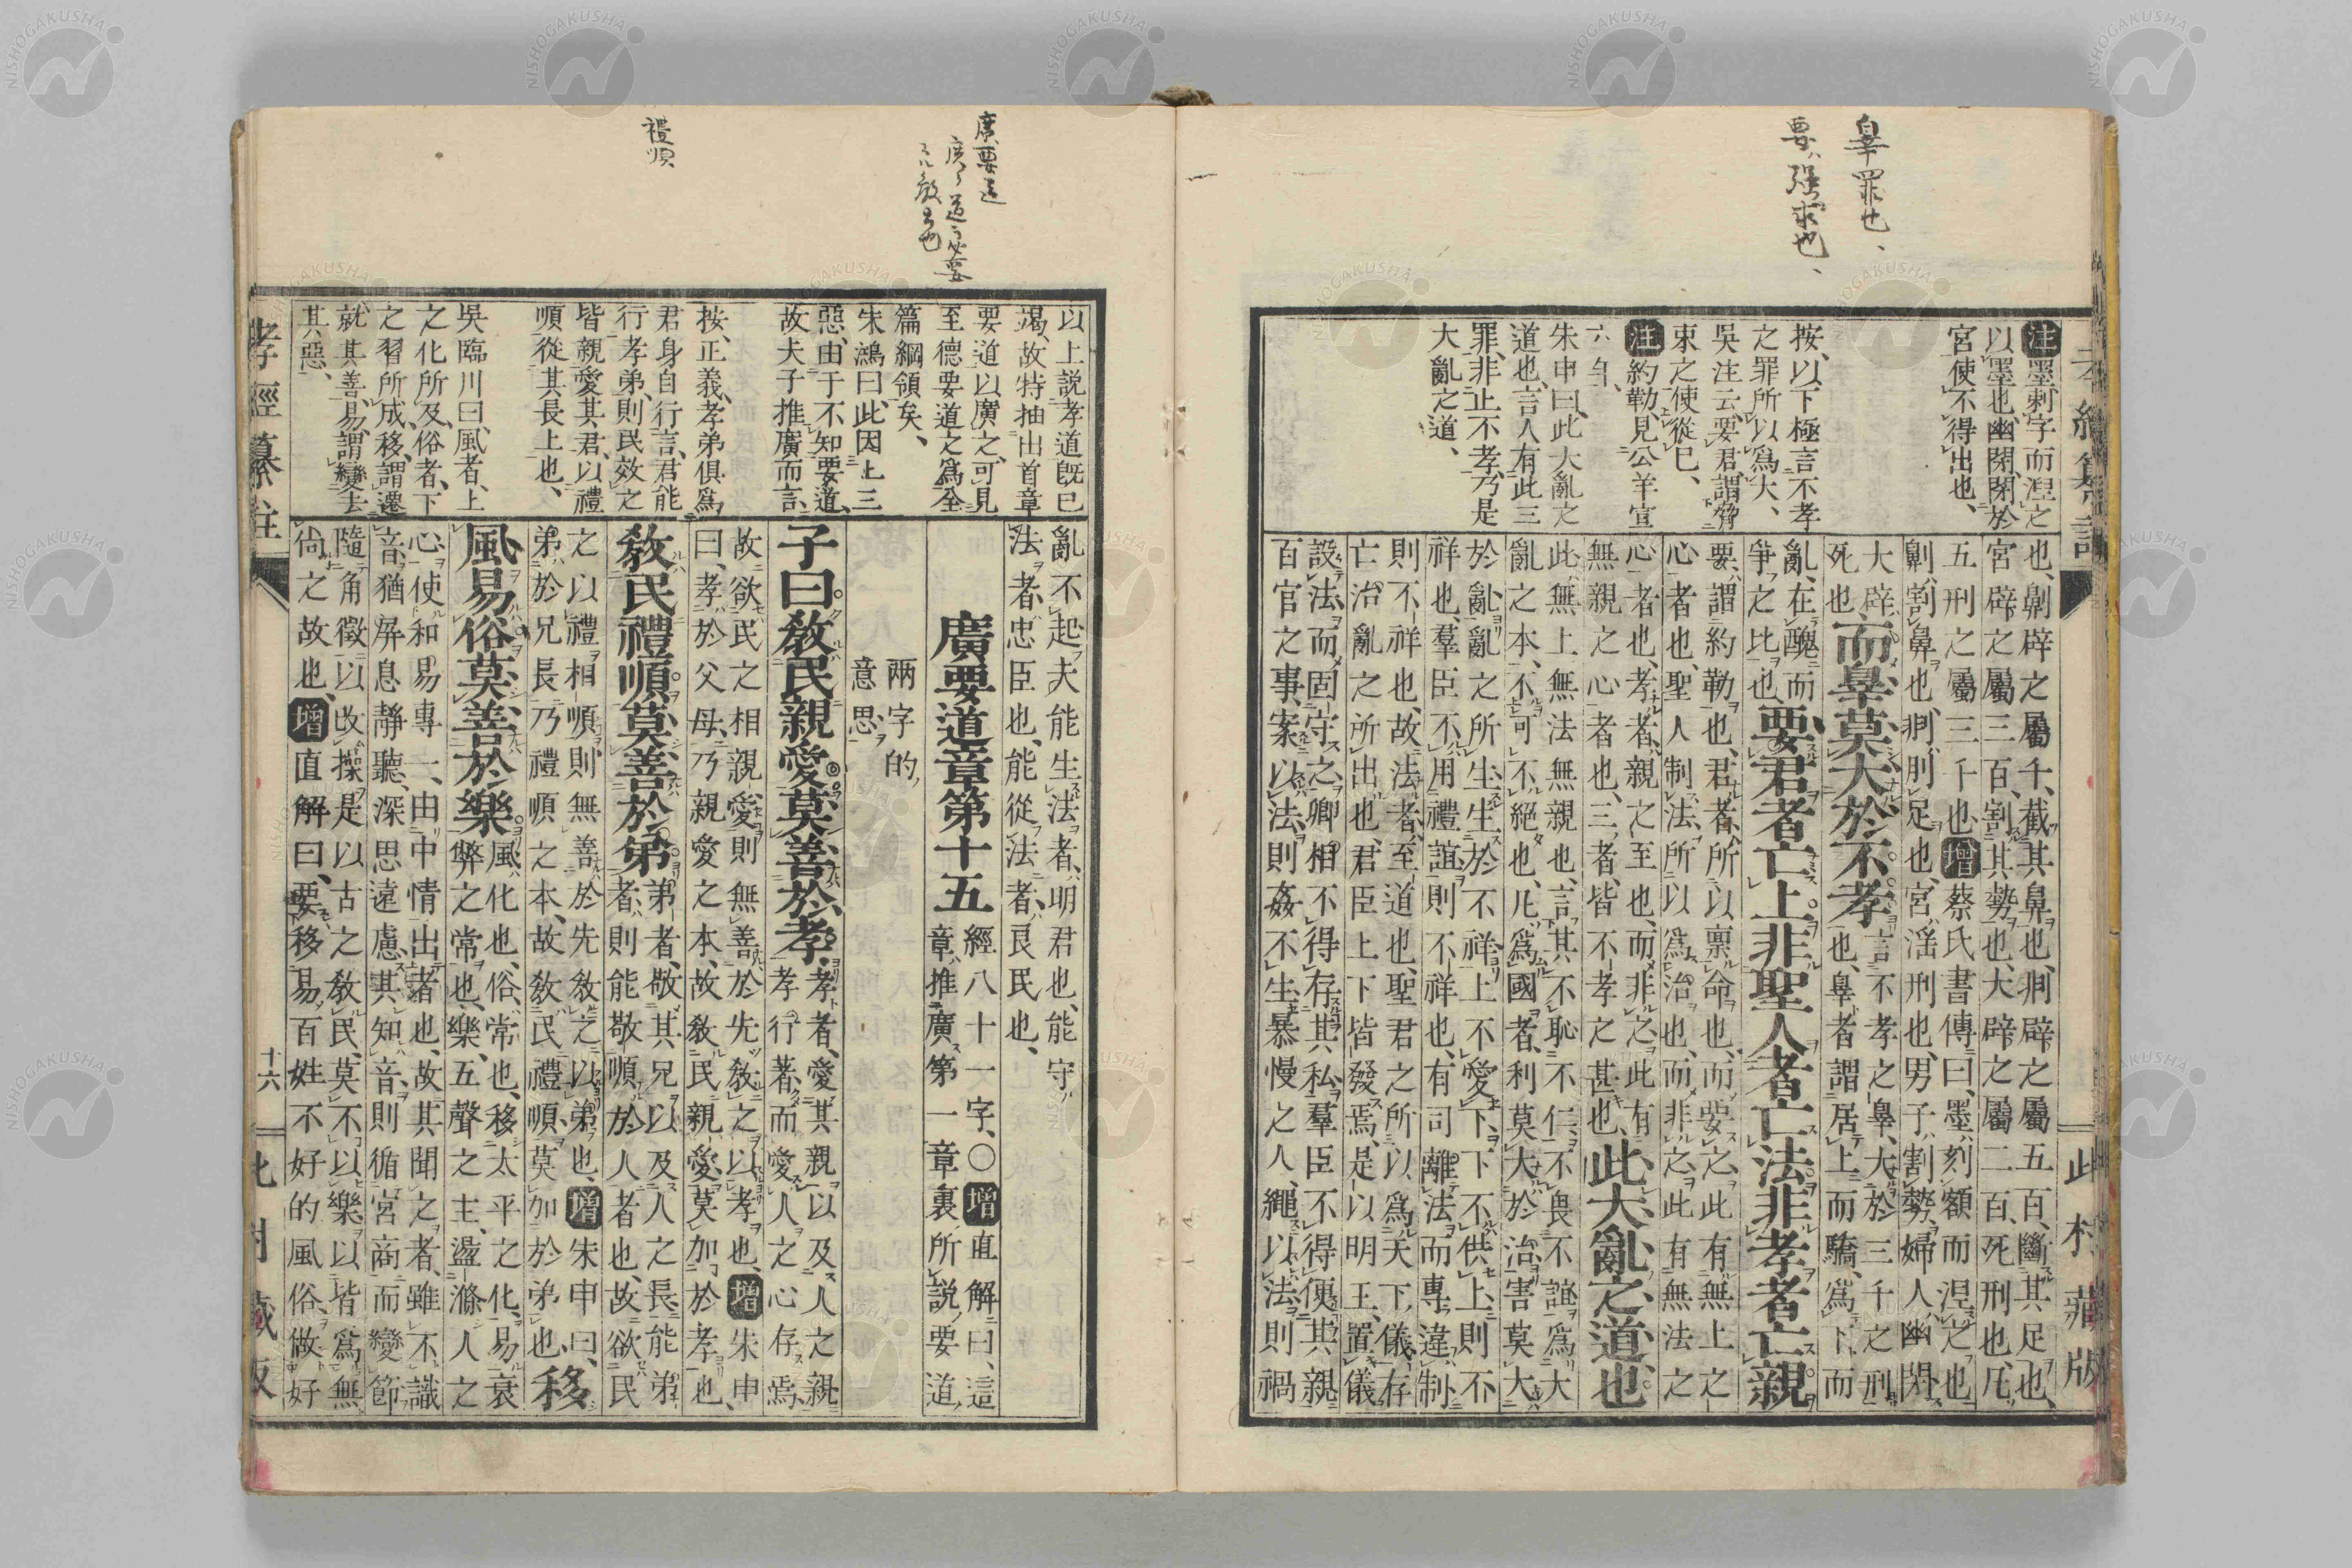 辠罪也、
要ハ強求也、
注墨刺字而涅之
以墨也幽閉閉於
宮使不得出也、
按、以下極言不孝
之罪所以為大、
吳注云要君、謂脅
束之使從已、
注約勒、見公羊宣
六年、
朱申曰、此大亂之
道也、言人有此三
罪、非止不孝、乃是
大亂之道、
也、劓辟之屬千、截其鼻也、剕辟之屬五百、斷其足也、
宮辟之屬三百、割其勢也、大辟之屬二百、死刑也、凡
五刑之屬三千也、增蔡氏書傳曰、墨、刻額而涅之也、
劓、割鼻也、剕、刖足也、宮、淫刑也、男子割勢、婦人幽閉、
大辟、死也、而辠莫大於不孝言不孝之辠、大於三千之刑
也、辠者謂居上而驕、為下而
亂、在醜而爭之比也、要君者亡上非聖人者亡法非孝者亡親
要、謂約勒也、君者、所以稟命也、而要之、此有無上之
心者也、聖人制法、所以為治也、而非之、此有無法之
心者也、孝者、親之至也、而非之、此有
無親之心者也、三者、皆不孝之甚也、此大亂之道也
此、無上無法無親也、言其不恥不仁、不畏不誼、為大
亂之本、不可不絕也、凡為國者、利莫大於治、害莫大
於亂、亂之所生、生於不祥、上不愛下、下不供上、則不
祥也、羣臣不用禮誼、則不祥也、有司離法而專違制、
則不祥也、故法者、至道也、聖君之所以為天下儀、存
亡治亂之所出也、君臣上下皆發焉、是以明王、置儀
設法、而固守之、卿相不得存其私、羣臣不得便其親、
百官之事、案以法、則姦不生、暴慢之人、繩以法、則禍
此村藏版
廣要道
禮順
以上說孝道既已
竭、故特抽出首章
要道以廣之、可見
至德要道之為全
篇綱領矣、
朱鴻曰、此因上三
惡、由于不知要道、
故夫子推廣而言、
按、正義、孝弟俱為
君身自行言、君能
行孝弟、則民效之
皆親愛其君、以禮
順從其長上也、
吳臨川曰、風者、上
之化所及、俗者、下
之習所成、移、謂遷
就其善、易、謂變去
其惡、
亂不起、夫能生法者、明君也、能守
法者、忠臣也、能從法者、良民也、
廣要道章第十五經八十一字、〇增直解曰、這
章推廣第一章裏所說要道、
兩字的
意思、
子曰教民親愛莫善於孝、孝者、愛其親以及人之親
孝行著而愛人之心存焉、
故欲民之相親愛、則無善於先教之以孝也、增朱申
曰、孝於父母、乃親愛之本、故教民親愛、莫加於孝也、
教民禮順莫善於弟弟者、敬其兄以及人之長、能弟
者、則能敬順於人者也、故欲民
之以禮相順、則無善於先教之以弟也、增朱申曰、
弟於兄長、乃禮順之本、故教民禮順、莫加於弟也移
風易俗莫善於樂風、化也、俗、常也、移太平之化、易衰
弊之常也、樂、五聲之主、盪滌人之
心、使和易專一、由中情出者也、故其聞之者、雖不識
音、猶屏息靜聽、深思遠慮、其知音、則循宮商而變節、
隨角徵以改操、是以古之教民、莫不以樂、以皆為無
尚之故也、增直解曰、要移易百姓不好的風俗、做好
孝經纂註
十六